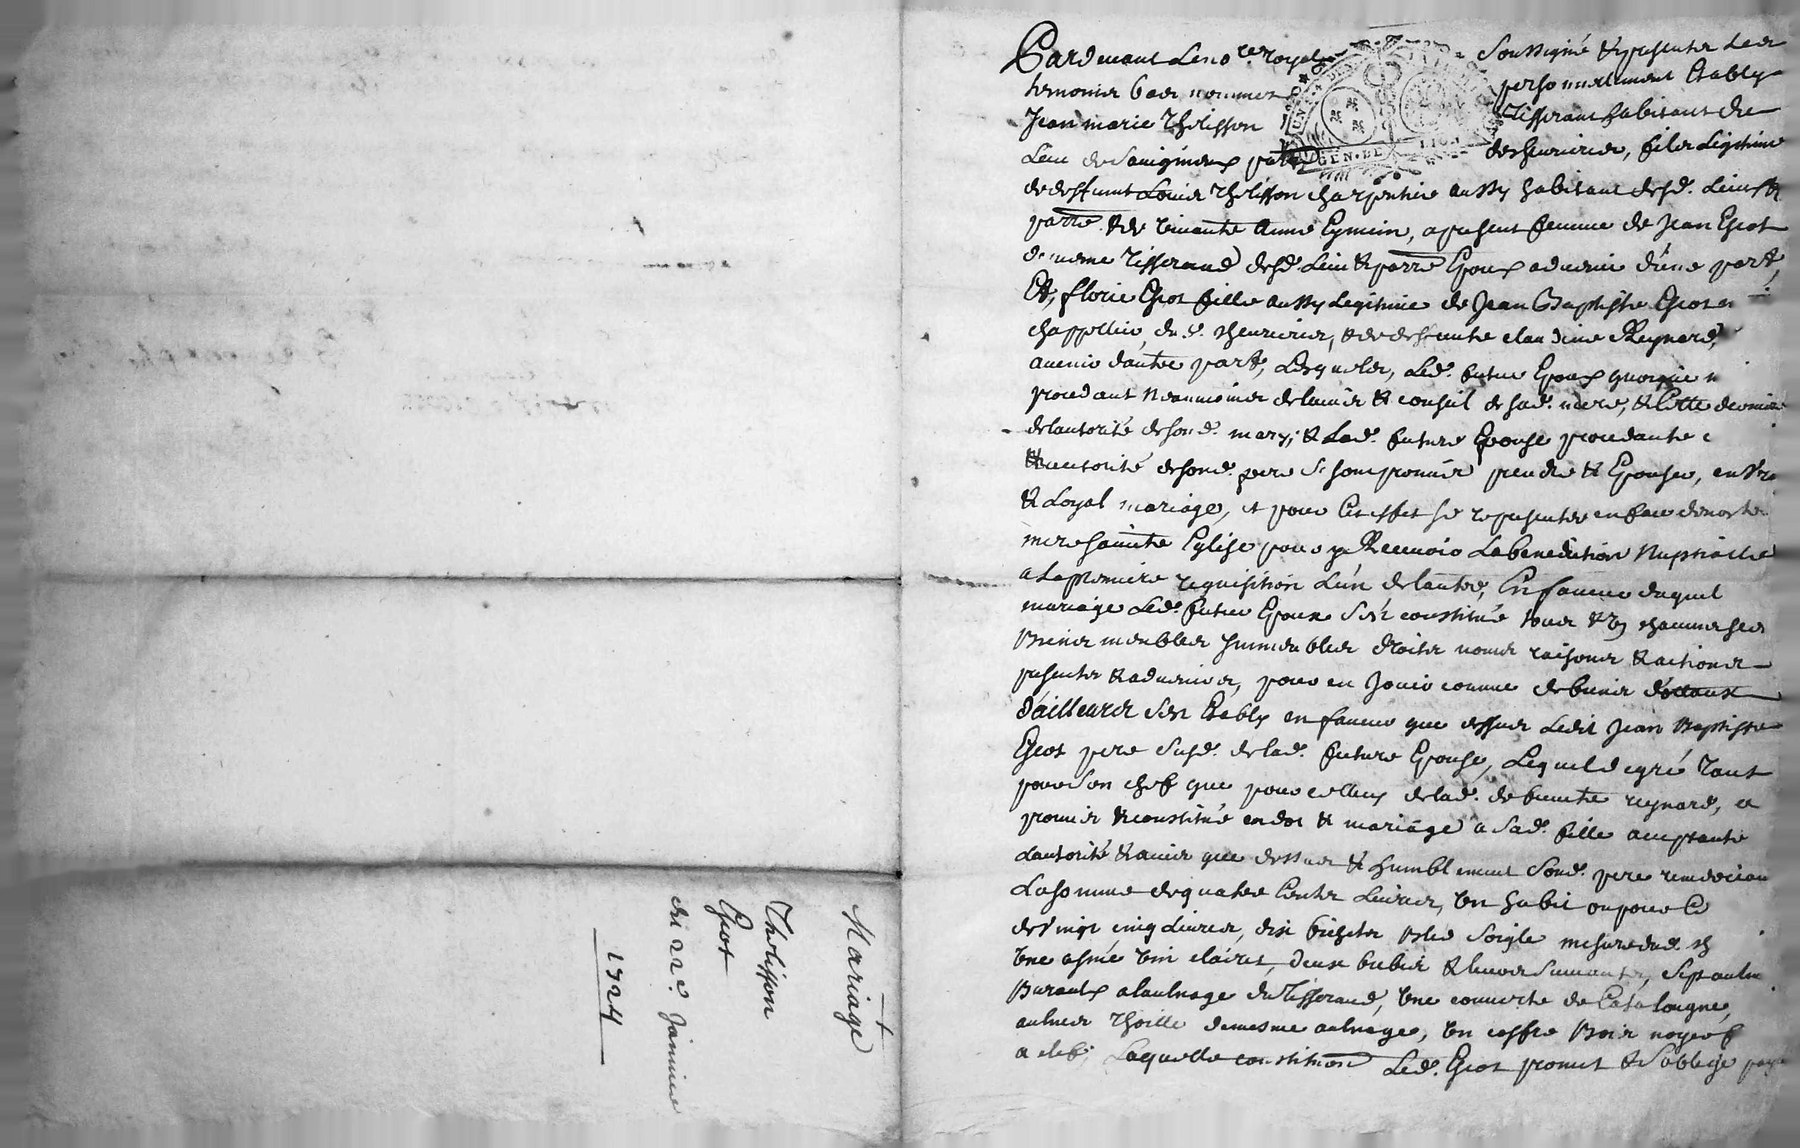 Mariage
Thelisson
Eyrot
du 22e Janvier
1724
Pardevant le no.re royal soussigné & presents les
temoins bas nommes personnellement Estably
Jean marie Thelisson Tisserant habitant du
Lieu de Savigneux parr desheurieres, fils Legitime
de deffunt Louis Thelisson charpentier aussy habitant desd. Lieu &
parre & de vivante Anne Eymin, apresent femme de Jean Eyrot
de mesme Tisserand desd. Lieu & parre Epoux advenir d'une part,
Et, florie Eyrot fille aussy Legitime de Jean Baptiste Eyrot
chappellier, & de deffunte claudine Reynard,
avenir dautre part, Lesquels, Led. futur Epoux
procedant neanmoins de lavis & conseil de sad. mere, & Cette derniere
de lautorité de son d. mary; & Lad. future Epouse procedante
& autorité de sond. pere se sont promis prendre & Epouser, en vray
& Loyal mariage, et pour Cet effet se representer en face de nostre
mere sainte Eglise pour y Recevoir La benediction Nuptialle
a La premiere requisition L'un de lautre, En faveur duquel
mariage Led. futur Epoux s'est constitué tous & un chacuns ses
Biens meubles Immeubles droits noms raisons & actions
presents & advenir, pour en Jouir comme de biens dotaux
d'ailleurs s'est Estably en faveur que dessus Ledit Jean Baptiste
Eyrot pere susd. de lad. future Epouse, Lequel de gré tant
pour son chef que pour celluy de lad. defunte reynard, a
promis & constitué en dot & mariage a sad. fille acceptante
Lautorité & avis que dessus & humblement sond. pere remerciant
La somme de quatre Cents Livres, Un habit ou pour Ce
de Vingt cinq Livres, dix bichets Bled soigle mesure
Une asnée vin clairet, deux brebis & leurs suivants, sept aulnes
Buraux a laulnage du Tisserand, Une couverte de Catalougne,
aulnes Thoille de mesme aulnage, Un coffre Bois noyer f
a clef; Laquelle constitution Led. Eyrot promet & s'oblige